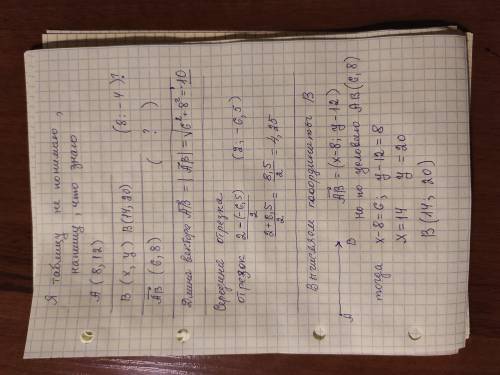 Я таблицу не понимаю,
напишу, что знаю
A (8, 12)
B (x, y) B(14, 20) (8; -4)?
AB (6, 8) ( ? )
Длина вектора AB = |AB| = √6²+8² = 10
Середина отрезка
отрезок 2-(-6,5)/2 (2; -6,5)
2+8,5/2 = 8,5/2 = 4,25
Вычисляем координаты B
A B AB = (x-8; y-12)
но по условию AB(6, 8)
тогда x-8=6; y-12=8
x=14 y=20
B(14; 20)